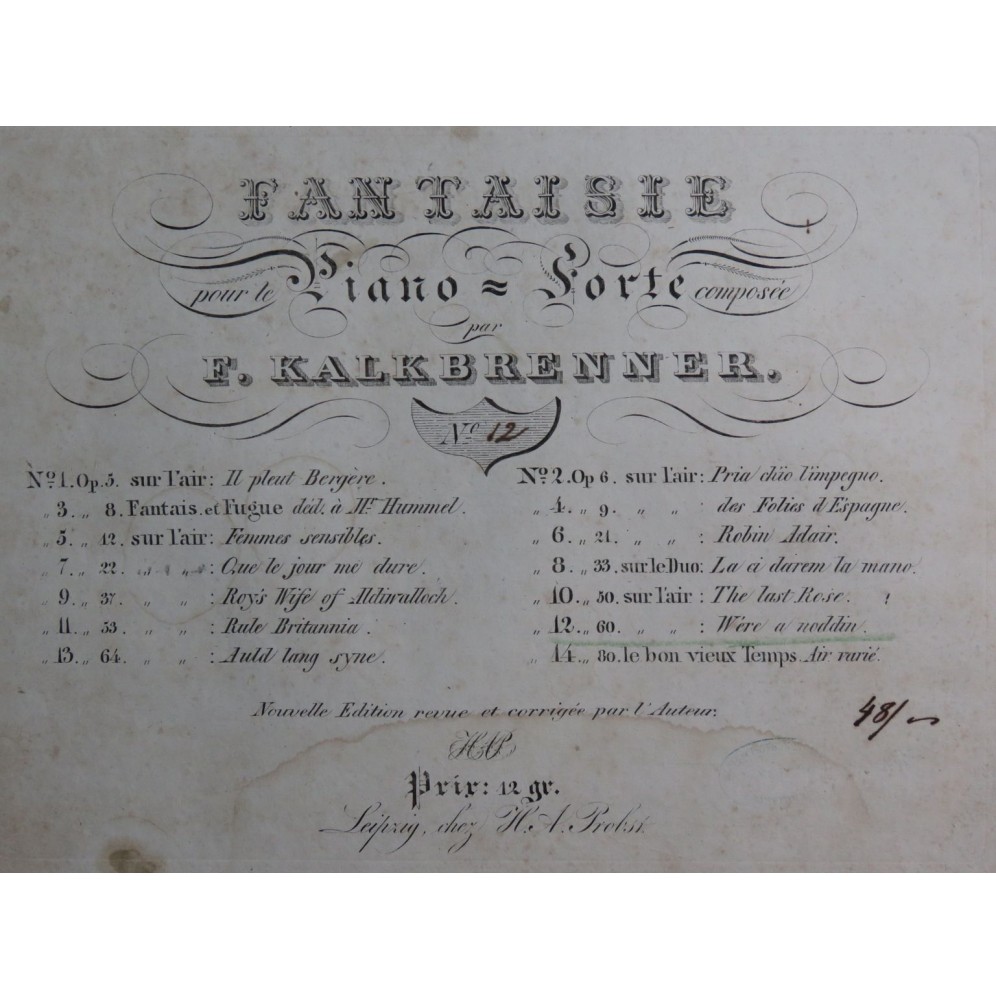 FANTAISIE
pour le Piano = Forte composée
par
F. KALKBRENNER.
No 12
No 1. Op. 5. sur l'air: Il pleut Bergère. No 2. Op 6. sur l'air: Pria chïo l'impegno.
„ 3. „ 8. Fantais. et Fugue déd. à Mr Hummel. „ 4. „ 9. „ „ : des Folies d'Espagne.
„ 5. „ 12. sur l'air: Femmes sensibles. „ 6. „ 21. „ „ : Robin Adair.
„ 7. „ 22. „ „ : Que le jour me dure. „ 8. „ 33. sur le Duo: La ci darem la mano.
„ 9. „ 37. „ „ : Roy's Wife of Aldiwalloch. „ 10. „ 50. sur l'air: The last Rose.
„ 11. „ 53. „ „ : Rule Britannia. „ 12. „ 60. „ „ : We're a noddin.
„ 13. „ 64. „ „ : Auld lang syne. „ 14. „ 80. le bon vieux Temps. Air varié.
Nouvelle Edition revue et corrigée par l'Auteur.
48/~
HAP.
Prix: 12 gr.
Leipzig, chez H. A. Probst.